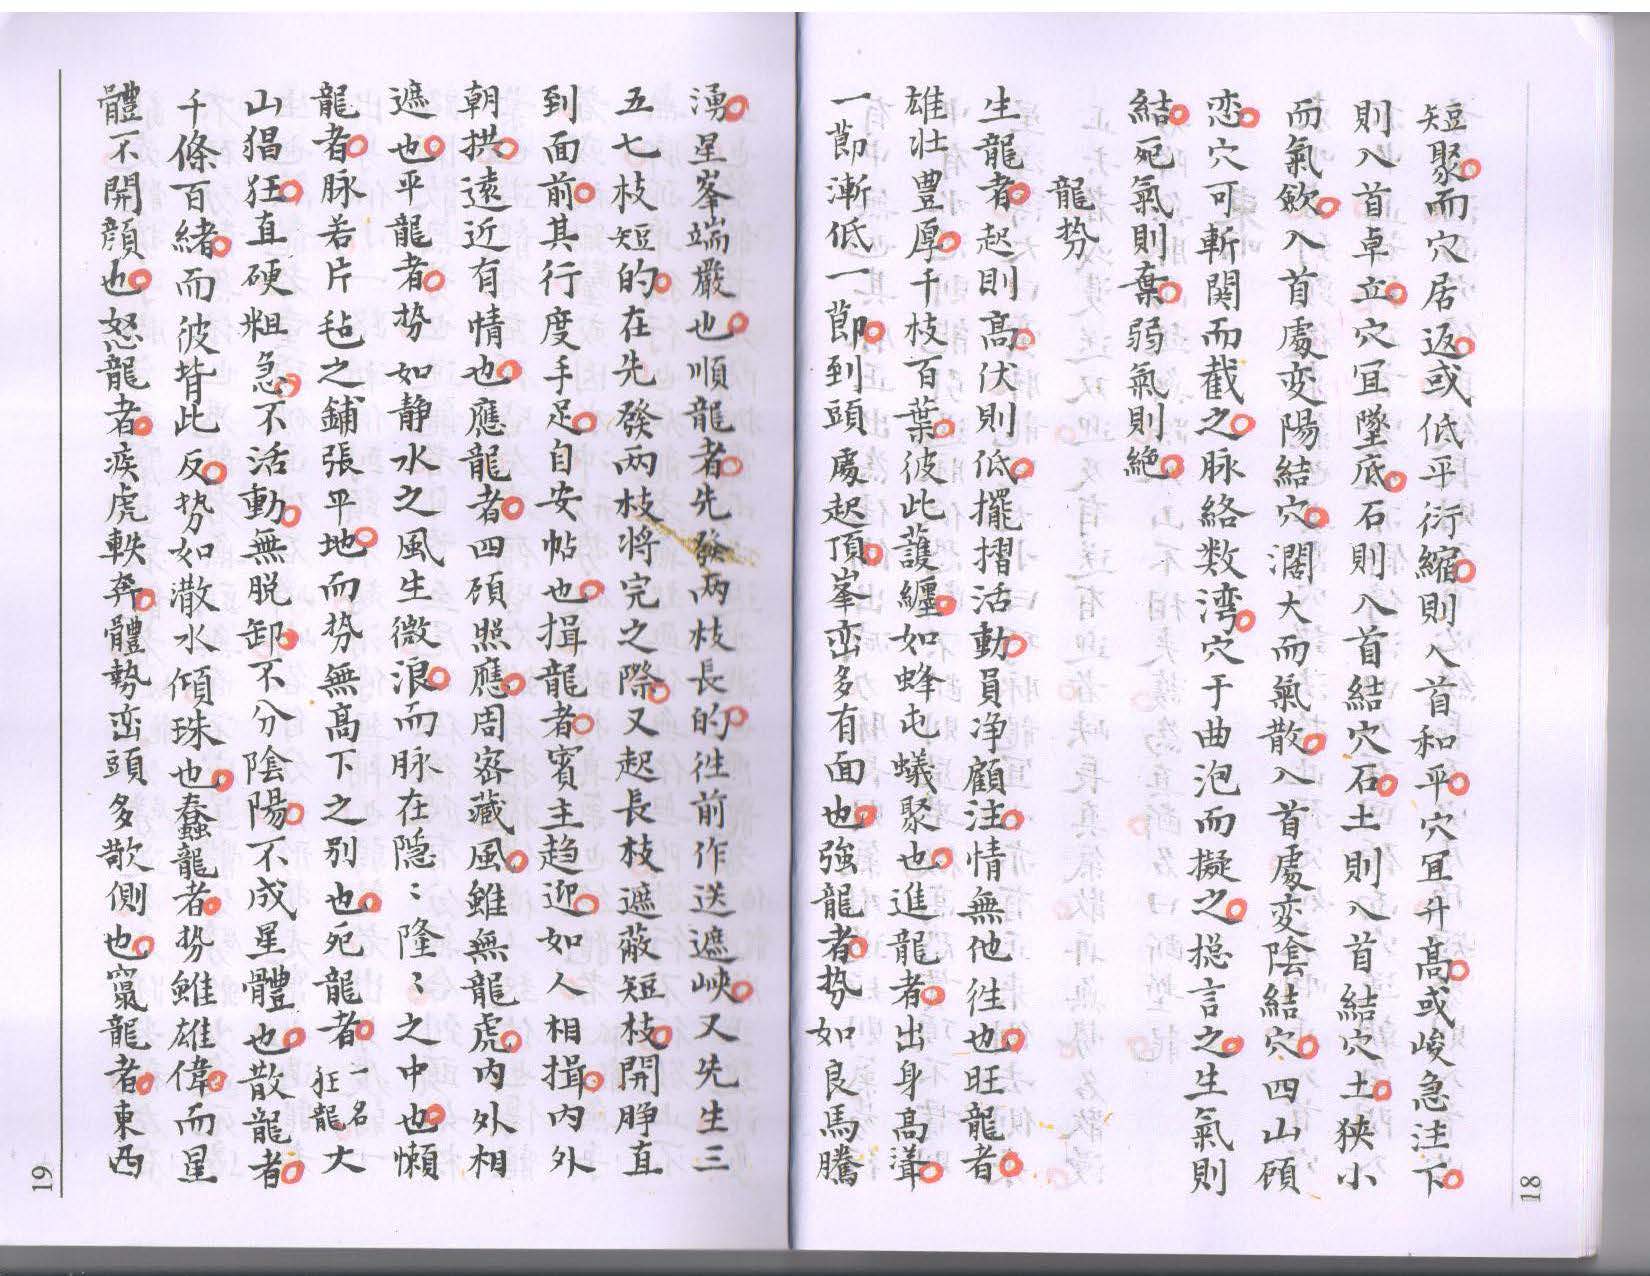 短聚而穴居返或低平衍縮則入首和平穴宜升高或峻急注下
則入首卓立穴宜墜底石則入首結穴石土則入首結穴土狹小
而氣斂入首處变陽結穴濶大而氣散入首處变陰結穴四山顧
恋穴可斬関而截之脉絡数湾穴于曲泡而擬之捴言之生氣則
結死氣則棄弱氣則絕
龍势
生龍者起則高伏則低擺摺活動員净顧注情無他往也旺龍者
雄壮豊厚千枝百葉彼此護纏如蜂屯蟻聚也進龍者出身高聳
一節漸低一節到頭處起頂峯峦多有面也強龍者势如良馬騰
湧星峯端嚴也順龍者先發兩枝長的往前作送遮峽又先生三
五七枝短的在先發兩枝将完之際又起長枝遮蔽短枝開睜直
到面前其行度手足自安帖也揖龍者賓主趋迎如人相揖内外
朝拱遠近有情也應龍者四顧照應周宻藏風雖無龍虎内外相
遮也平龍者势如静水之風生微浪而脉在隐〻隆〻之中也懒
龍者脉若片毡之鋪張平地而势無高下之别也死龍者一名狂龍大
山猖狂直硬粗急不活動無脱卸不分陰陽不成星體也散龍者
千條百緒而彼背此反势如潵水傾珠也蠢龍者势雖雄偉而星
體不開顔也怒龍者疾虎軼奔體勢峦頭多欹側也竄龍者東西
19
18